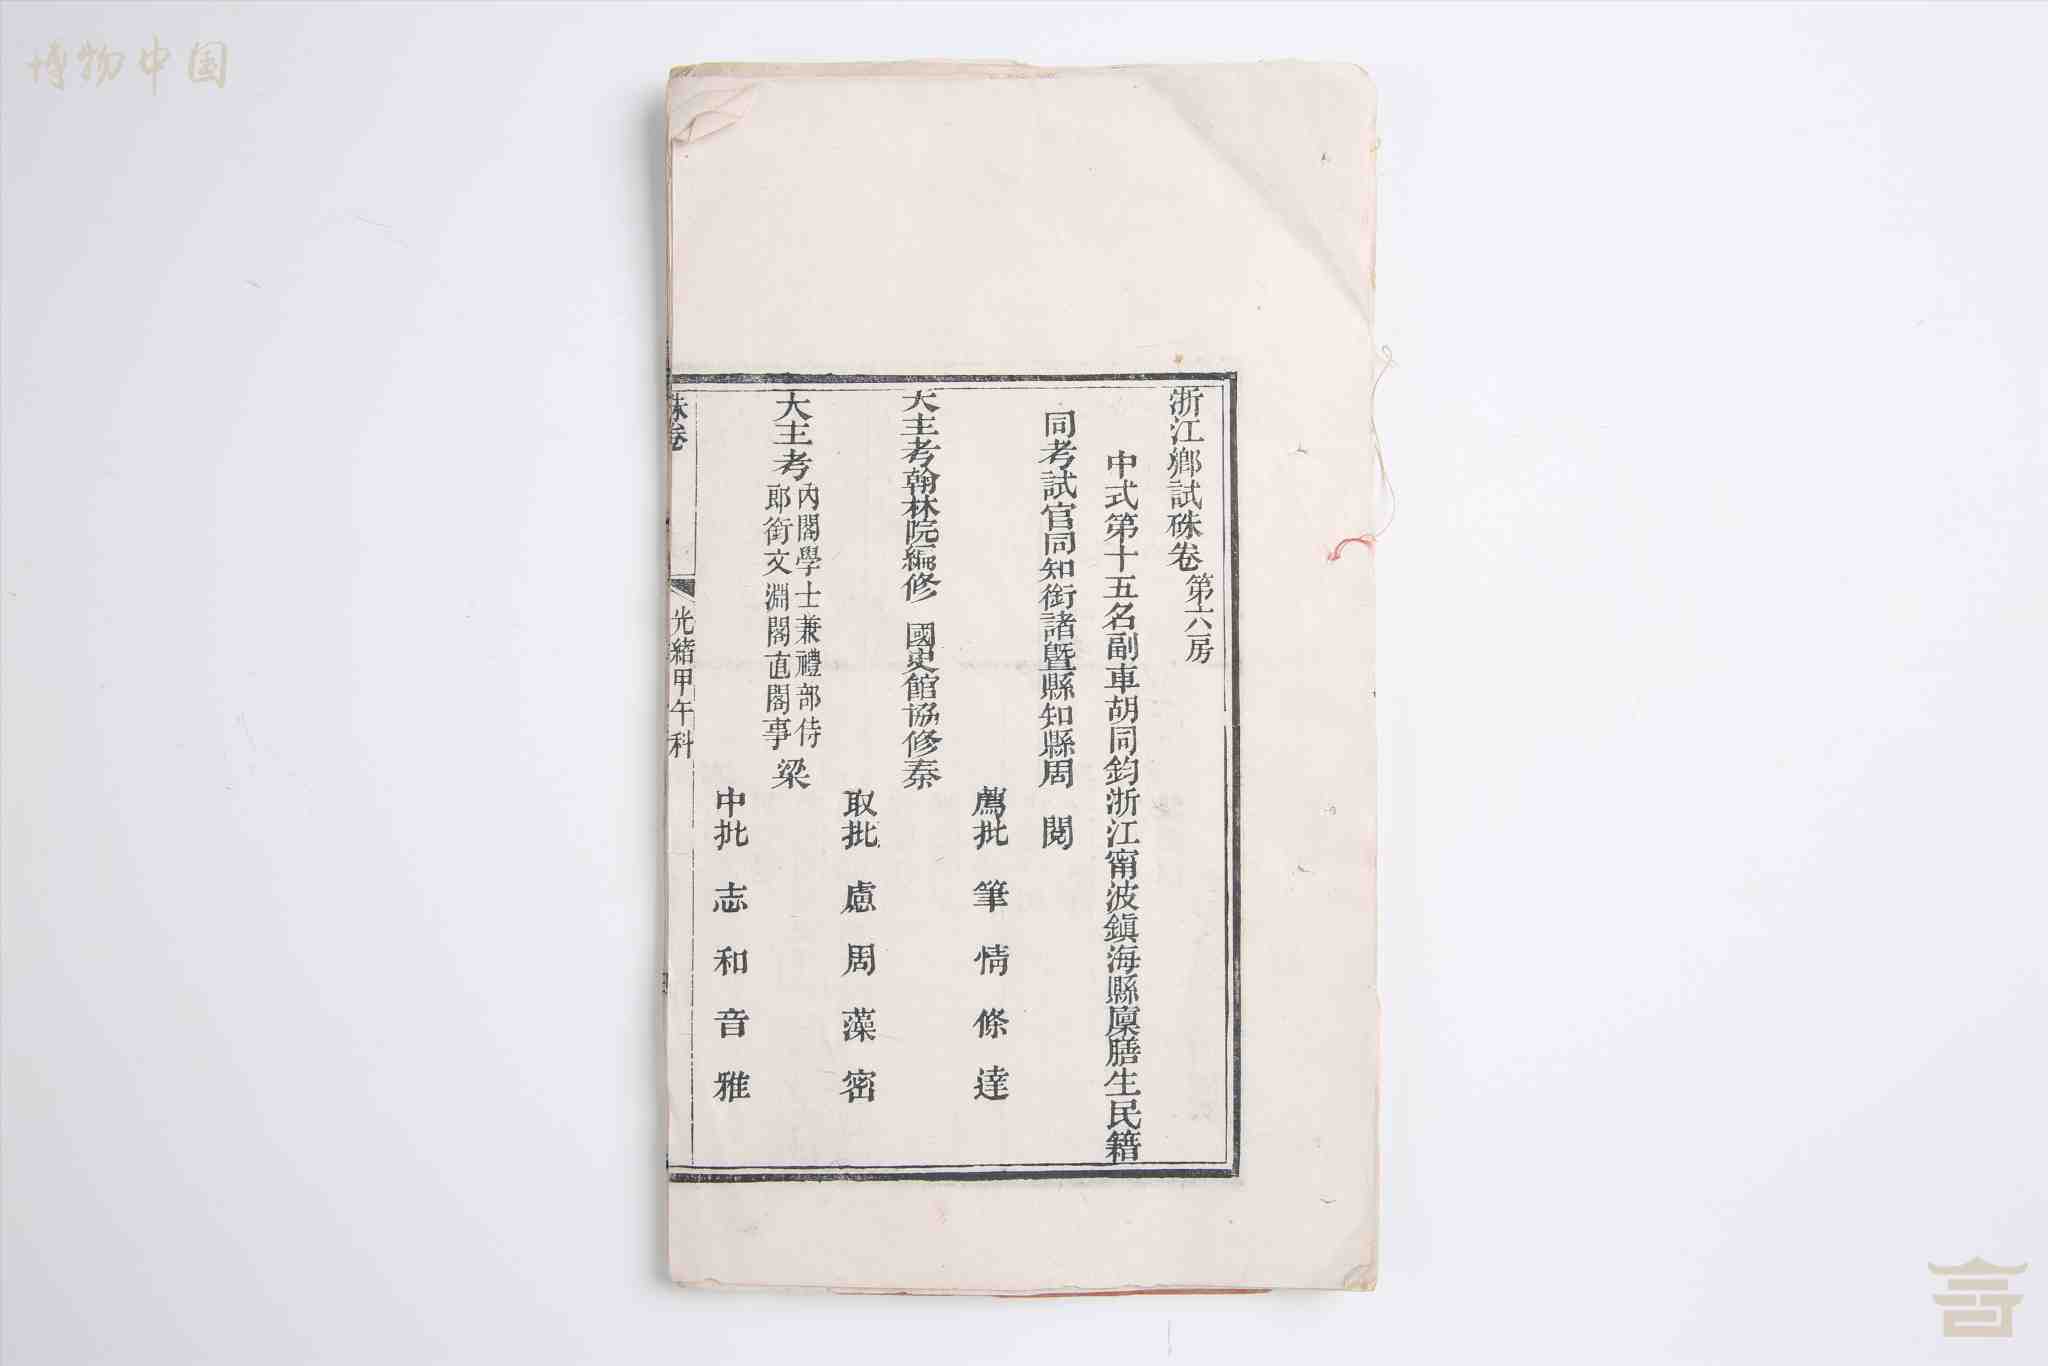 博物中国
浙江鄉試硃卷第六房
中式第十五名副車胡同鈞浙江甯波鎮海縣廩膳生民籍
同考試官同知銜諸暨縣知縣周 閱
薦批 筆情條達
大主考翰林院編修 國史館協修秦
取批 慮周藻密
大主考內閣學士兼禮部侍郎銜文淵閣直閣事梁
中批 志和音雅
硃卷 光緒甲午科